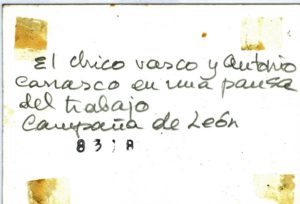 El chico vasco y Antonio
carrasco en una pausa
del trabajo
Campaña de León
83 8